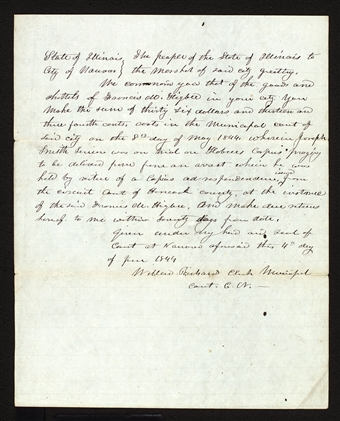 State of Illinois } The people of the State of Illinois to
City of Nauvoo } the Marshal of said city greeting,
We command you that of the goods and
chattels of Francis M. Higbee in your city you
make the sum of thirty six dollars and sixteen and
three fourth cents costs in the Municipal court of
said city on the 8th day of May 1844 wherein Joseph
Smith senior was on trial on Habeas Corpus praying
to be released from an arrest when he was
held by virtue of a Capias ad respondendum, issued from
the circuit court of Hancock county, at the instance
of the said Francis M. Higbee. And make due return
hereof to me within seventy days from date.
Given under my hand and seal of
Court at Nauvoo aforesaid this 4th day
of June 1844
Willard Richards Clerk Municipal
Court. C. N.